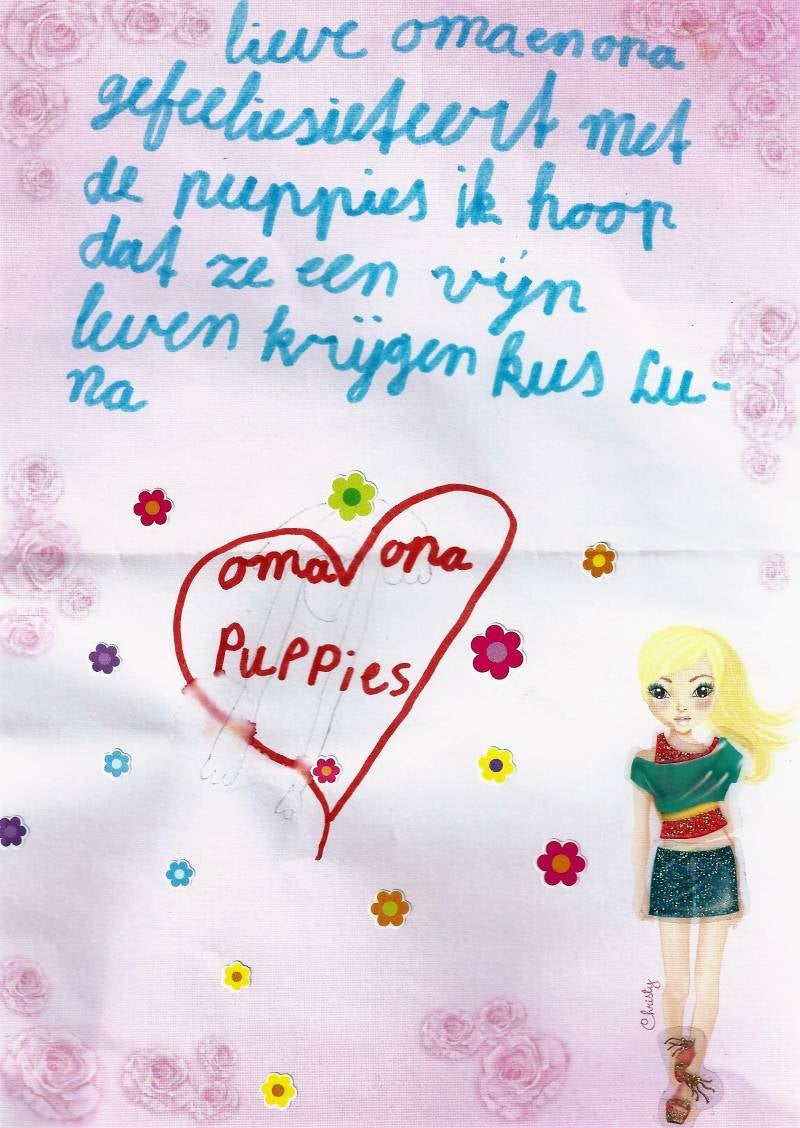 lieve oma en opa
gefeeliesieteert met
de puppies ik hoop
dat ze een vijn
leven krijgen kus Lu-
na
oma opa
PUPPies
Christy